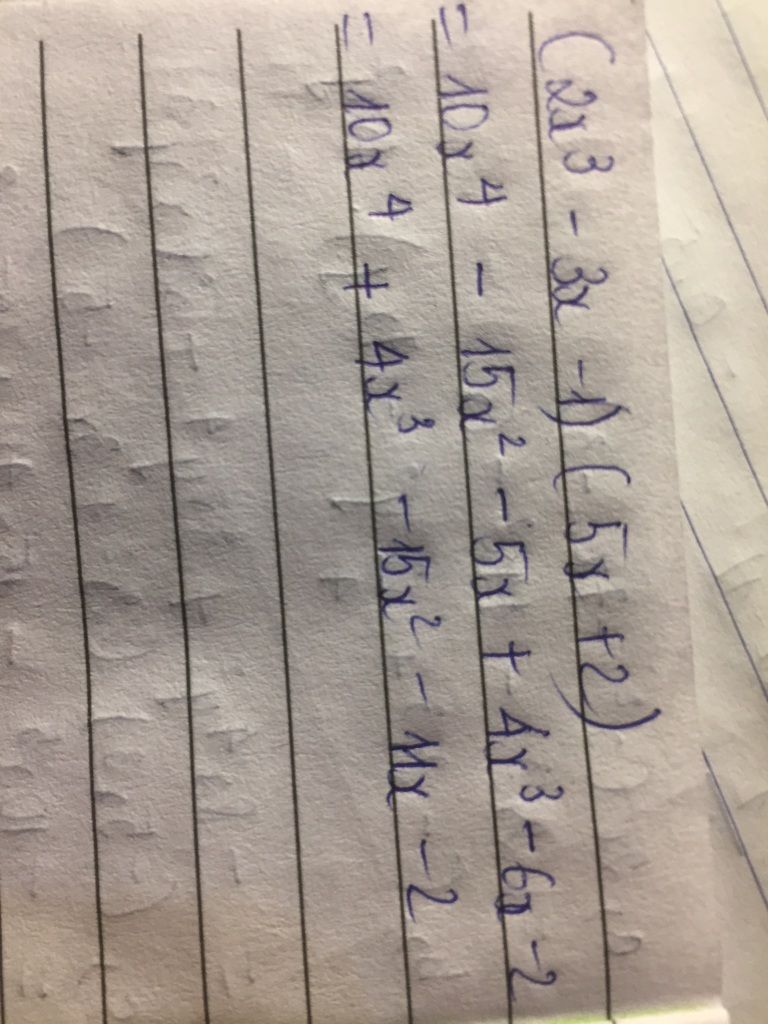 (2x³ - 3x - 1) (5x + 2)
= 10x⁴ - 15x² - 5x + 4x³ - 6x - 2
= 10x⁴ + 4x³ - 15x² - 11x - 2